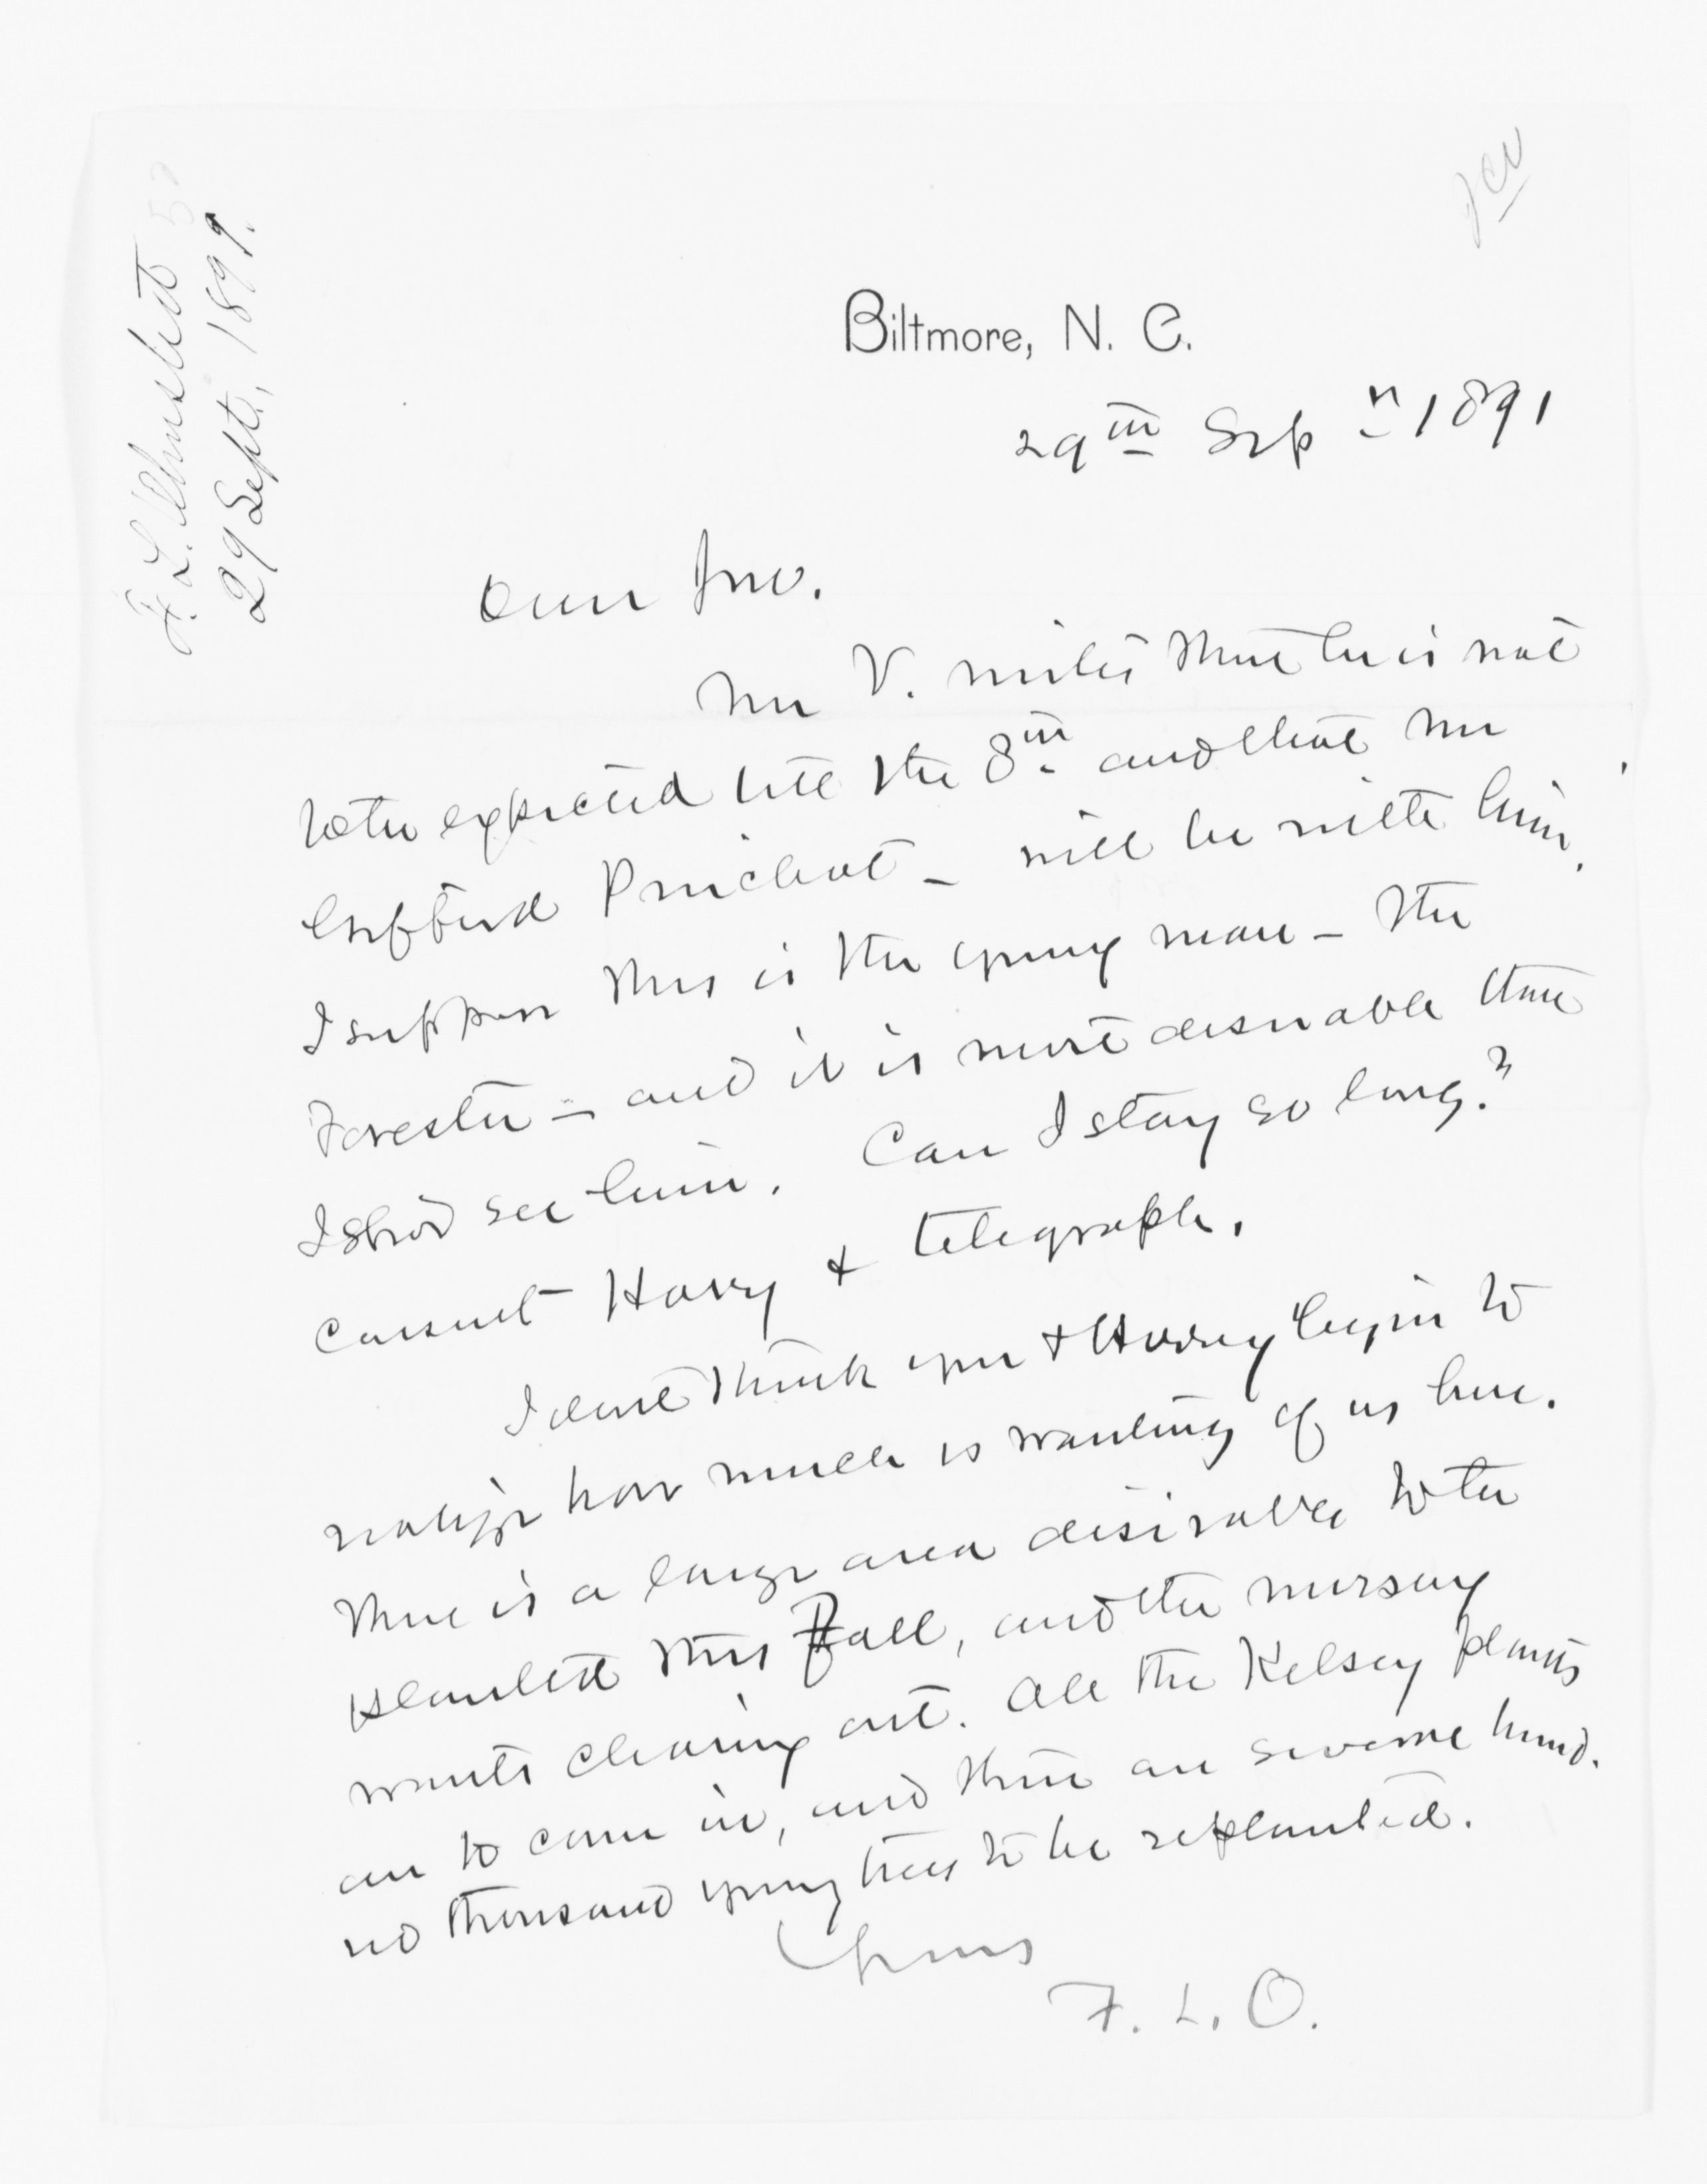 F. L. Olmsted
29 Sept., 1891.
Biltmore, N. C.
29th Sepr 1891
Dear Jno.
Mr V. writes that he is not
to be expected till the 8th and that Mr
Gifford Pinchot - will be with him.
I suppose this is the young man - the
Forester - and it is most desirable that
I shod see him. Can I stay so long?
Consult Harry & telegraph.
I dont think you & Harry begin to
realize how much is wanting of us here.
There is a large area desirable to be
planted this Fall, and the nursery
wants clearing out. All the Kelsey plants
are to come in, and there are several hund-
red thousand young trees to be replanted.
Yours
F. L. O.